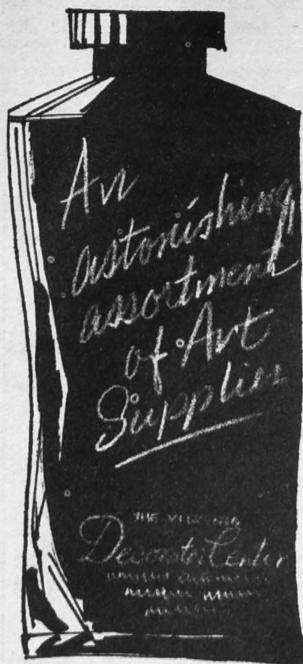 An
astonishing
assortment
of Art
Supplies
THE VIRGINIA
Decorator Center